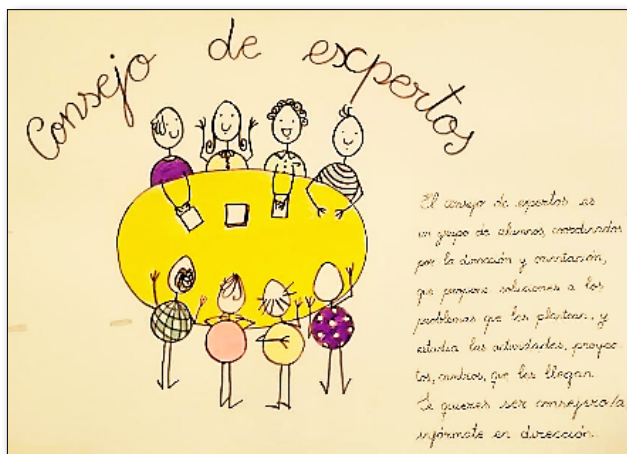 Consejo de expertos
El consejo de expertos es
un grupo de alumnos, coordinados
por la dirección y orientación,
que propone soluciones a los
problemas que les plantean, y
estudia las actividades, proyec-
tos, cambios, que les llegan.
Si quieres ser consejero/a
infórmate en dirección.